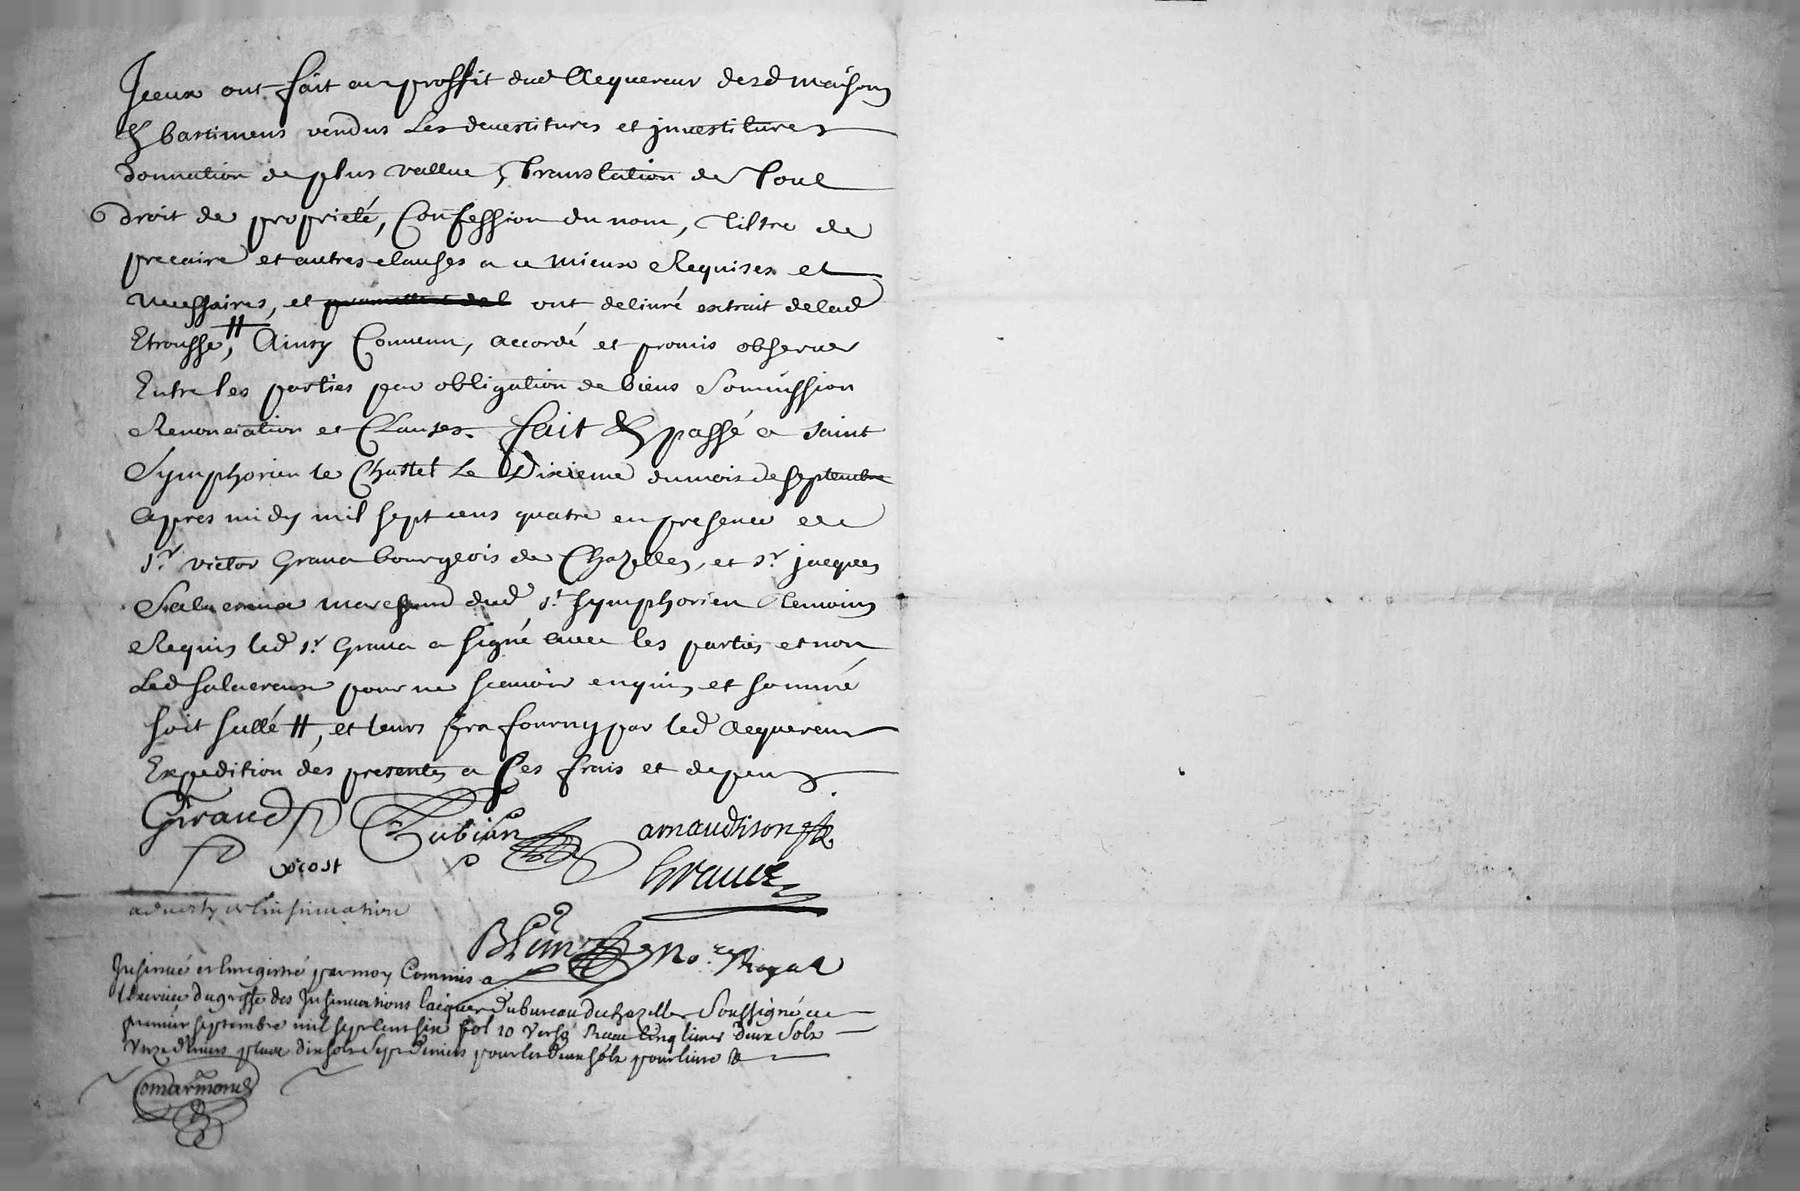 Iceux ont fait au proffit dud acquereur desd maisons
& bastimens vendus Les devestitures et jnvestitures
donnation de plus vallue, translation de tout
droit de proprieté, Confession du nom, tiltre de
precaire et autres clauses a ce mieux Requises et
necessaires, et ont delivré extrait delad
Etrousse, # Ainsy Convenu, accordé et promis observer
Entre les parties par obligation de biens Soumission
Renonciation et Clauses. fait & passé a saint
Symphorien le Chastel Le Dixieme du mois de septembre
apres midy mil sept cens quatre en presence de
sr. victor Grava bourgeois de Chazelles, et sr. jacques
marchand dud st. symphorien temoins
Requis led sr. Grava a signé avec les parties et non
Led pour ne scavoir enquis et sommé
soit sellé #, et leurs sera fourny par led acquereur
Expedition des presentes a ses frais et depens
Giraud Rubian arnaudison
vicost Grava
averty de linsinuation
Blein No.re Royal
Insinué et Enregistré par moy Commis a
lexercice du greffe des Insinuations laiques du bureau de chazelles Soussigné ce
premier septembre mil sept cent six fol 10 verso Receu cinq livres deux sols
unze deniers plus dix sols sept deniers pour les deux sols pour livre
Comarmond